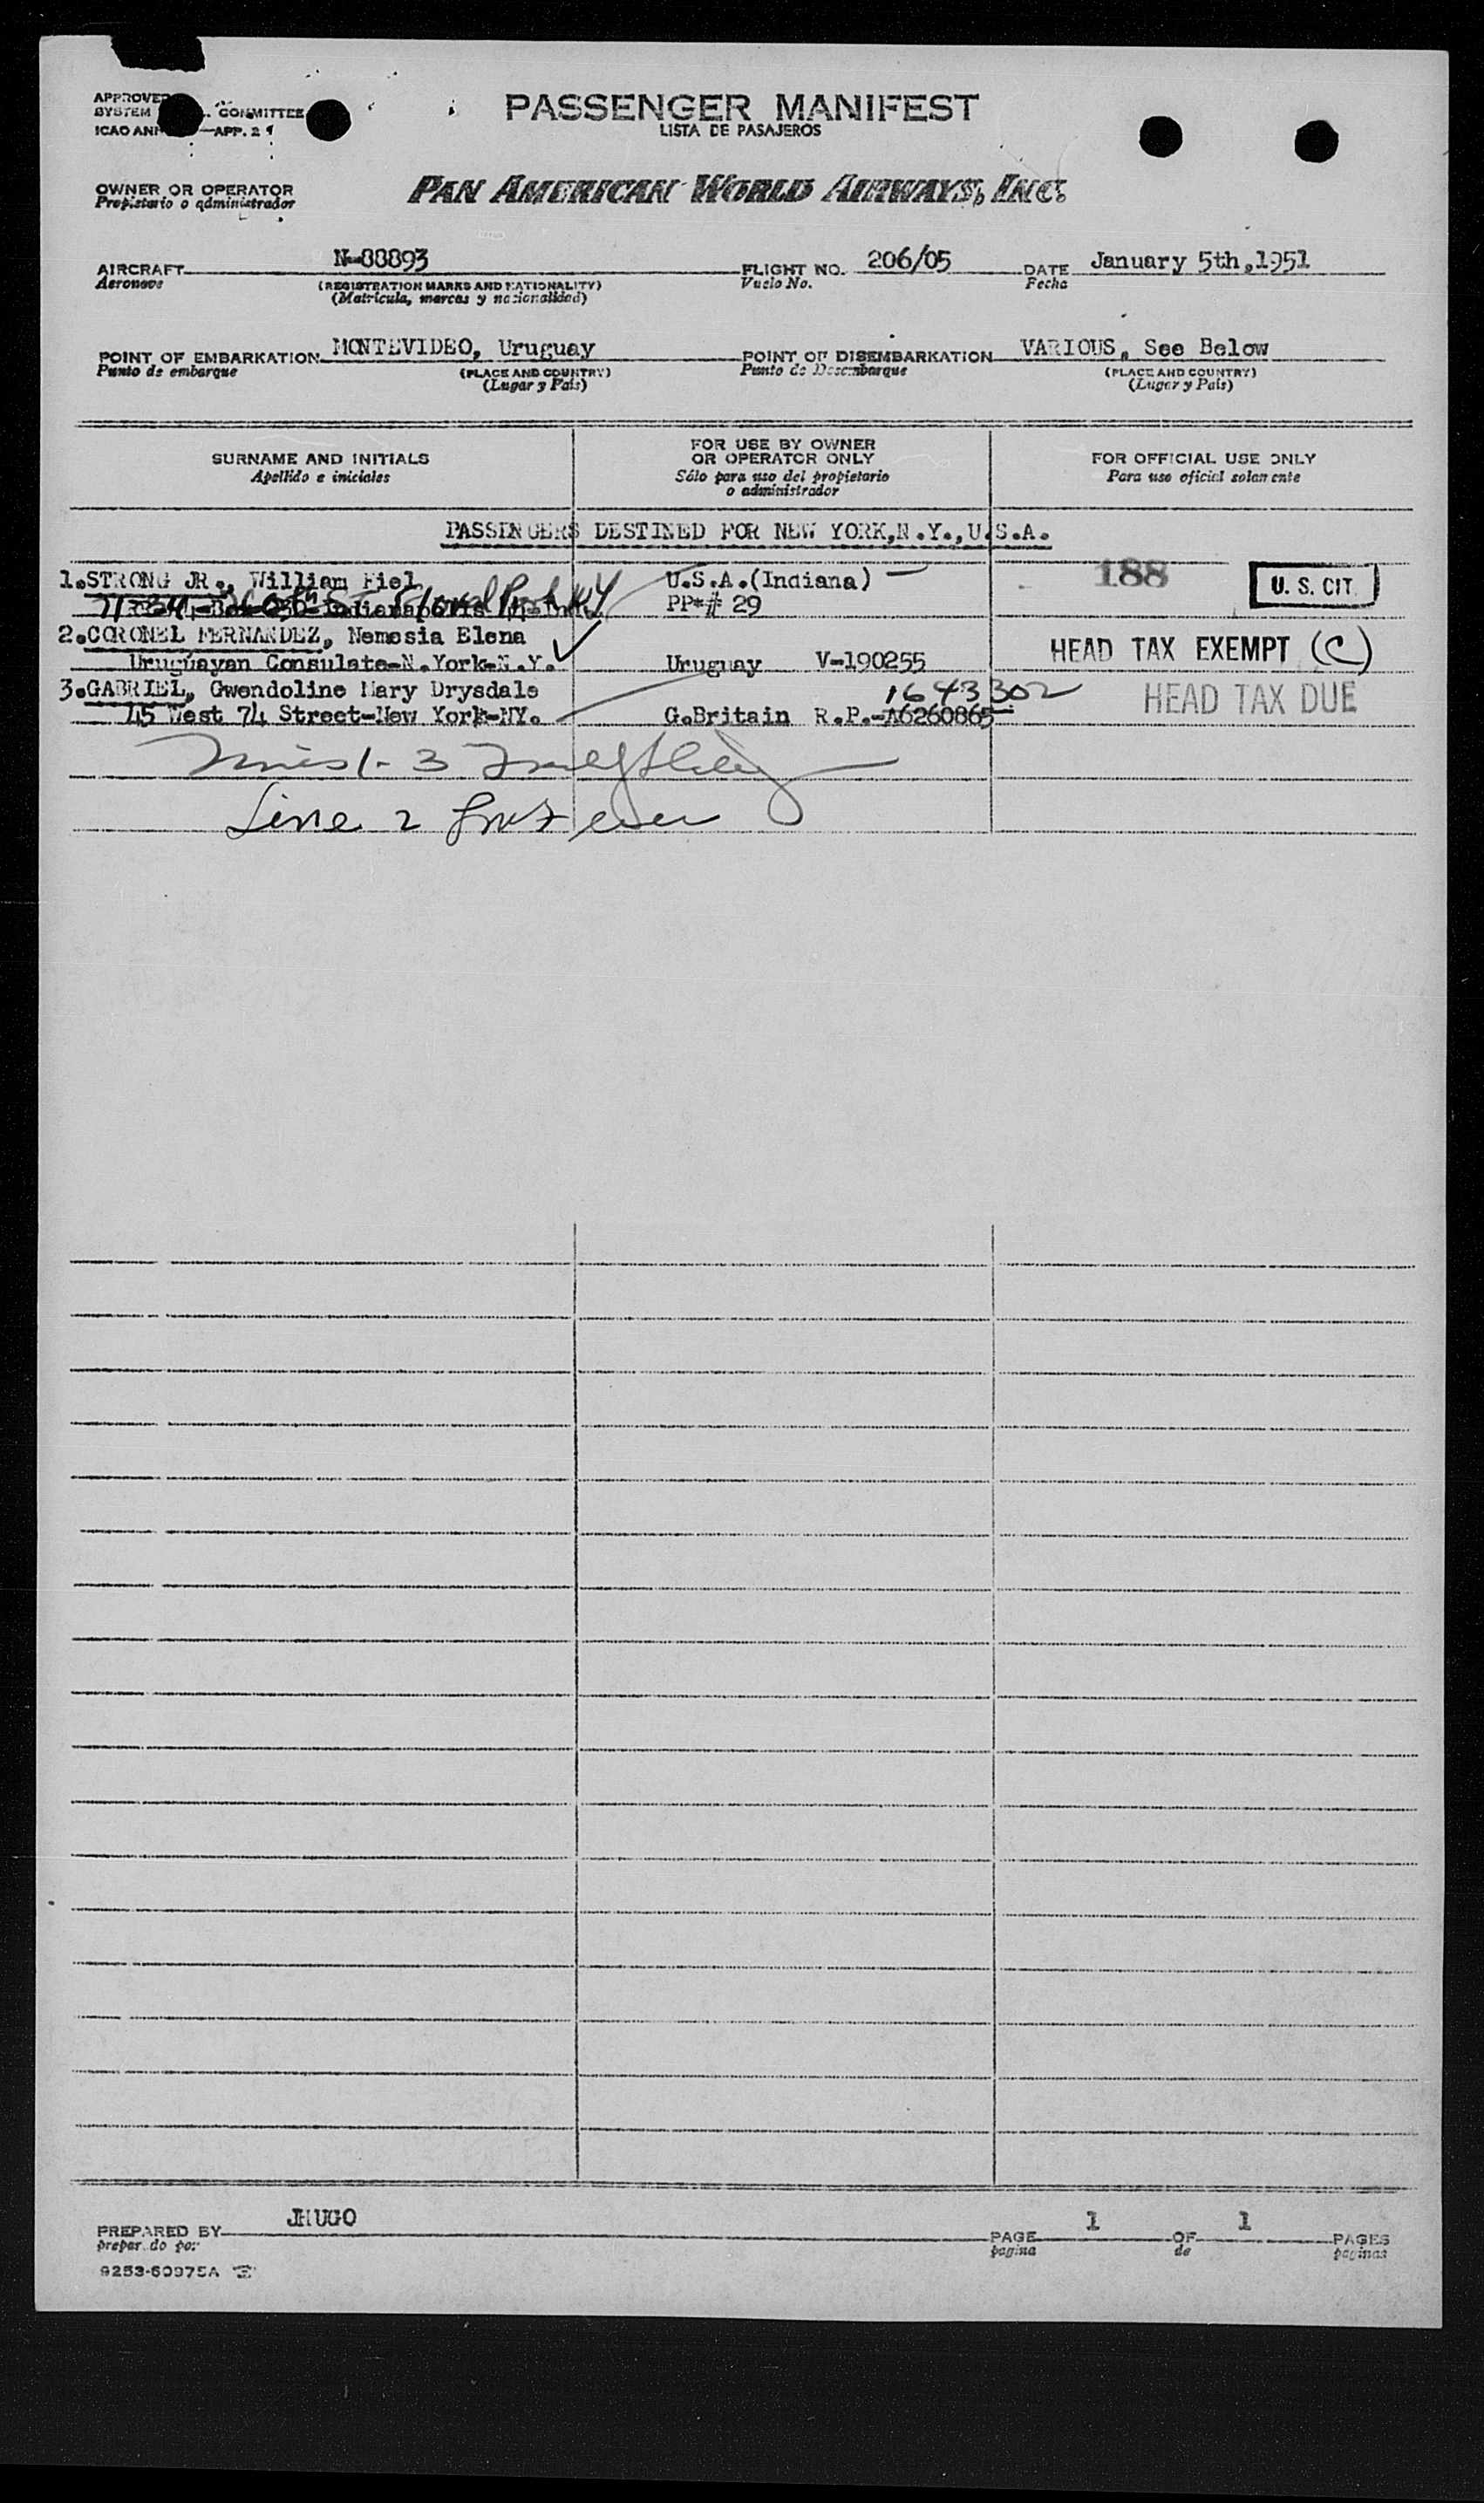 PASSENGER MANIFEST
LISTA DE PASAJEROS
APPROVED
SYSTEM COMMITTEE
ICAO —APP. 2
OWNER OR OPERATOR
Propietario o administrador
PAN AMERICAN WORLD AIRWAYS, INC.
AIRCRAFT N-88893 FLIGHT NO. 206/05 DATE January 5th,1951
Aeronave (REGISTRATION MARKS AND NATIONALITY) Vuelo No. Fecha
(Matrícula, marcas y nacionalidad)
POINT OF EMBARKATION MONTEVIDEO, Uruguay POINT OF DISEMBARKATION VARIOUS, See Below
Punto de embarque (PLACE AND COUNTRY) Punto de Desembarque (PLACE AND COUNTRY)
(Lugar y País) (Lugar y País)
SURNAME AND INITIALS
Apellido e iniciales
FOR USE BY OWNER
OR OPERATOR ONLY
Sólo para uso del propietario
o administrador
FOR OFFICIAL USE ONLY
Para uso oficial solamente
PASSENGERS DESTINED FOR NEW YORK,N.Y.,U.S.A.
1.STRONG JR., William Fiel U.S.A.(Indiana) 188 U. S. CIT.
Indianapolis PP*# 29
2.CORONEL FERNANDEZ, Nemesia Elena
Uruguayan Consulate-N.York-N.Y. Uruguay V-190255 HEAD TAX EXEMPT (C)
3.GABRIEL, Gwendoline Mary Drysdale 1643302 HEAD TAX DUE
45 West 74 Street-New York-NY. G.Britain R.P.-A6260865
1-3
Line 2
PREPARED BY JHUGO PAGE 1 OF 1 PAGES
preparado por pagina de paginas
9253-60975A